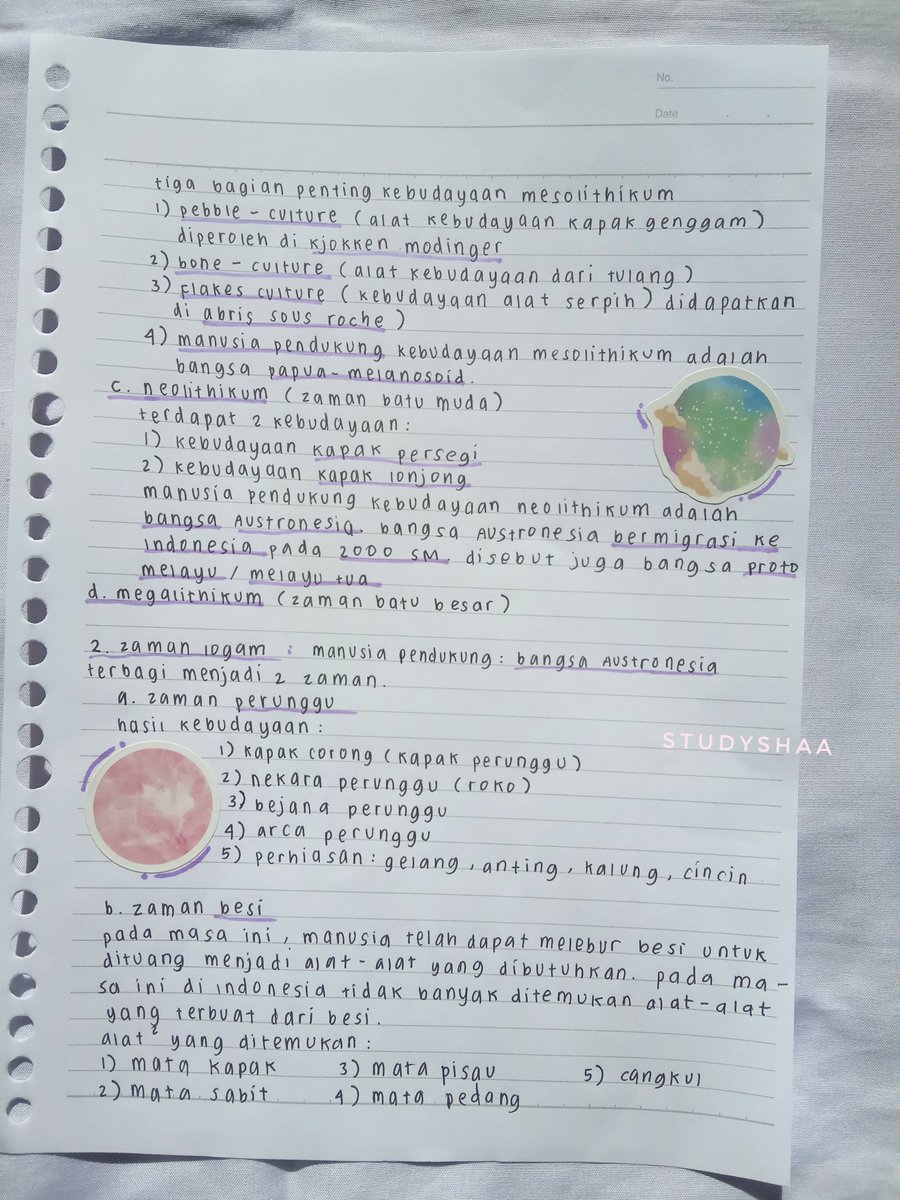 No.
Date
tiga bagian penting kebudayaan mesolithikum
1) pebble - culture (alat kebudayaan kapak genggam)
diperoleh di kjokken modinger
2) bone - culture (alat kebudayaan dari tulang)
3) flakes culture (kebudayaan alat serpih) didapatkan
di abris sous roche)
4) manusia pendukung kebudayaan mesolithikum adalah
bangsa papua-melanosoid.
c. neolithikum (zaman batu muda)
terdapat 2 kebudayaan:
1) kebudayaan kapak persegi
2) kebudayaan kapak lonjong
manusia pendukung kebudayaan neolithikum adalah
bangsa austronesia. bangsa austronesia bermigrasi ke
indonesia pada 2000 SM. disebut juga bangsa proto
melayu / melayu tua
d. megalithikum (zaman batu besar)
2. zaman logam : manusia pendukung: bangsa austronesia
terbagi menjadi 2 zaman.
a. zaman perunggu
hasil kebudayaan:
STUDYSHAA
1) kapak corong (kapak perunggu)
2) nekara perunggu (roko)
3) bejana perunggu
4) arca perunggu
5) perhiasan: gelang, anting, kalung, cincin
b. zaman besi
pada masa ini, manusia telah dapat melebur besi untuk
dituang menjadi alat-alat yang dibutuhkan. pada ma-
sa ini di indonesia tidak banyak ditemukan alat-alat
yang terbuat dari besi.
alat² yang ditemukan:
1) mata kapak 3) mata pisau 5) cangkul
2) mata sabit 4) mata pedang